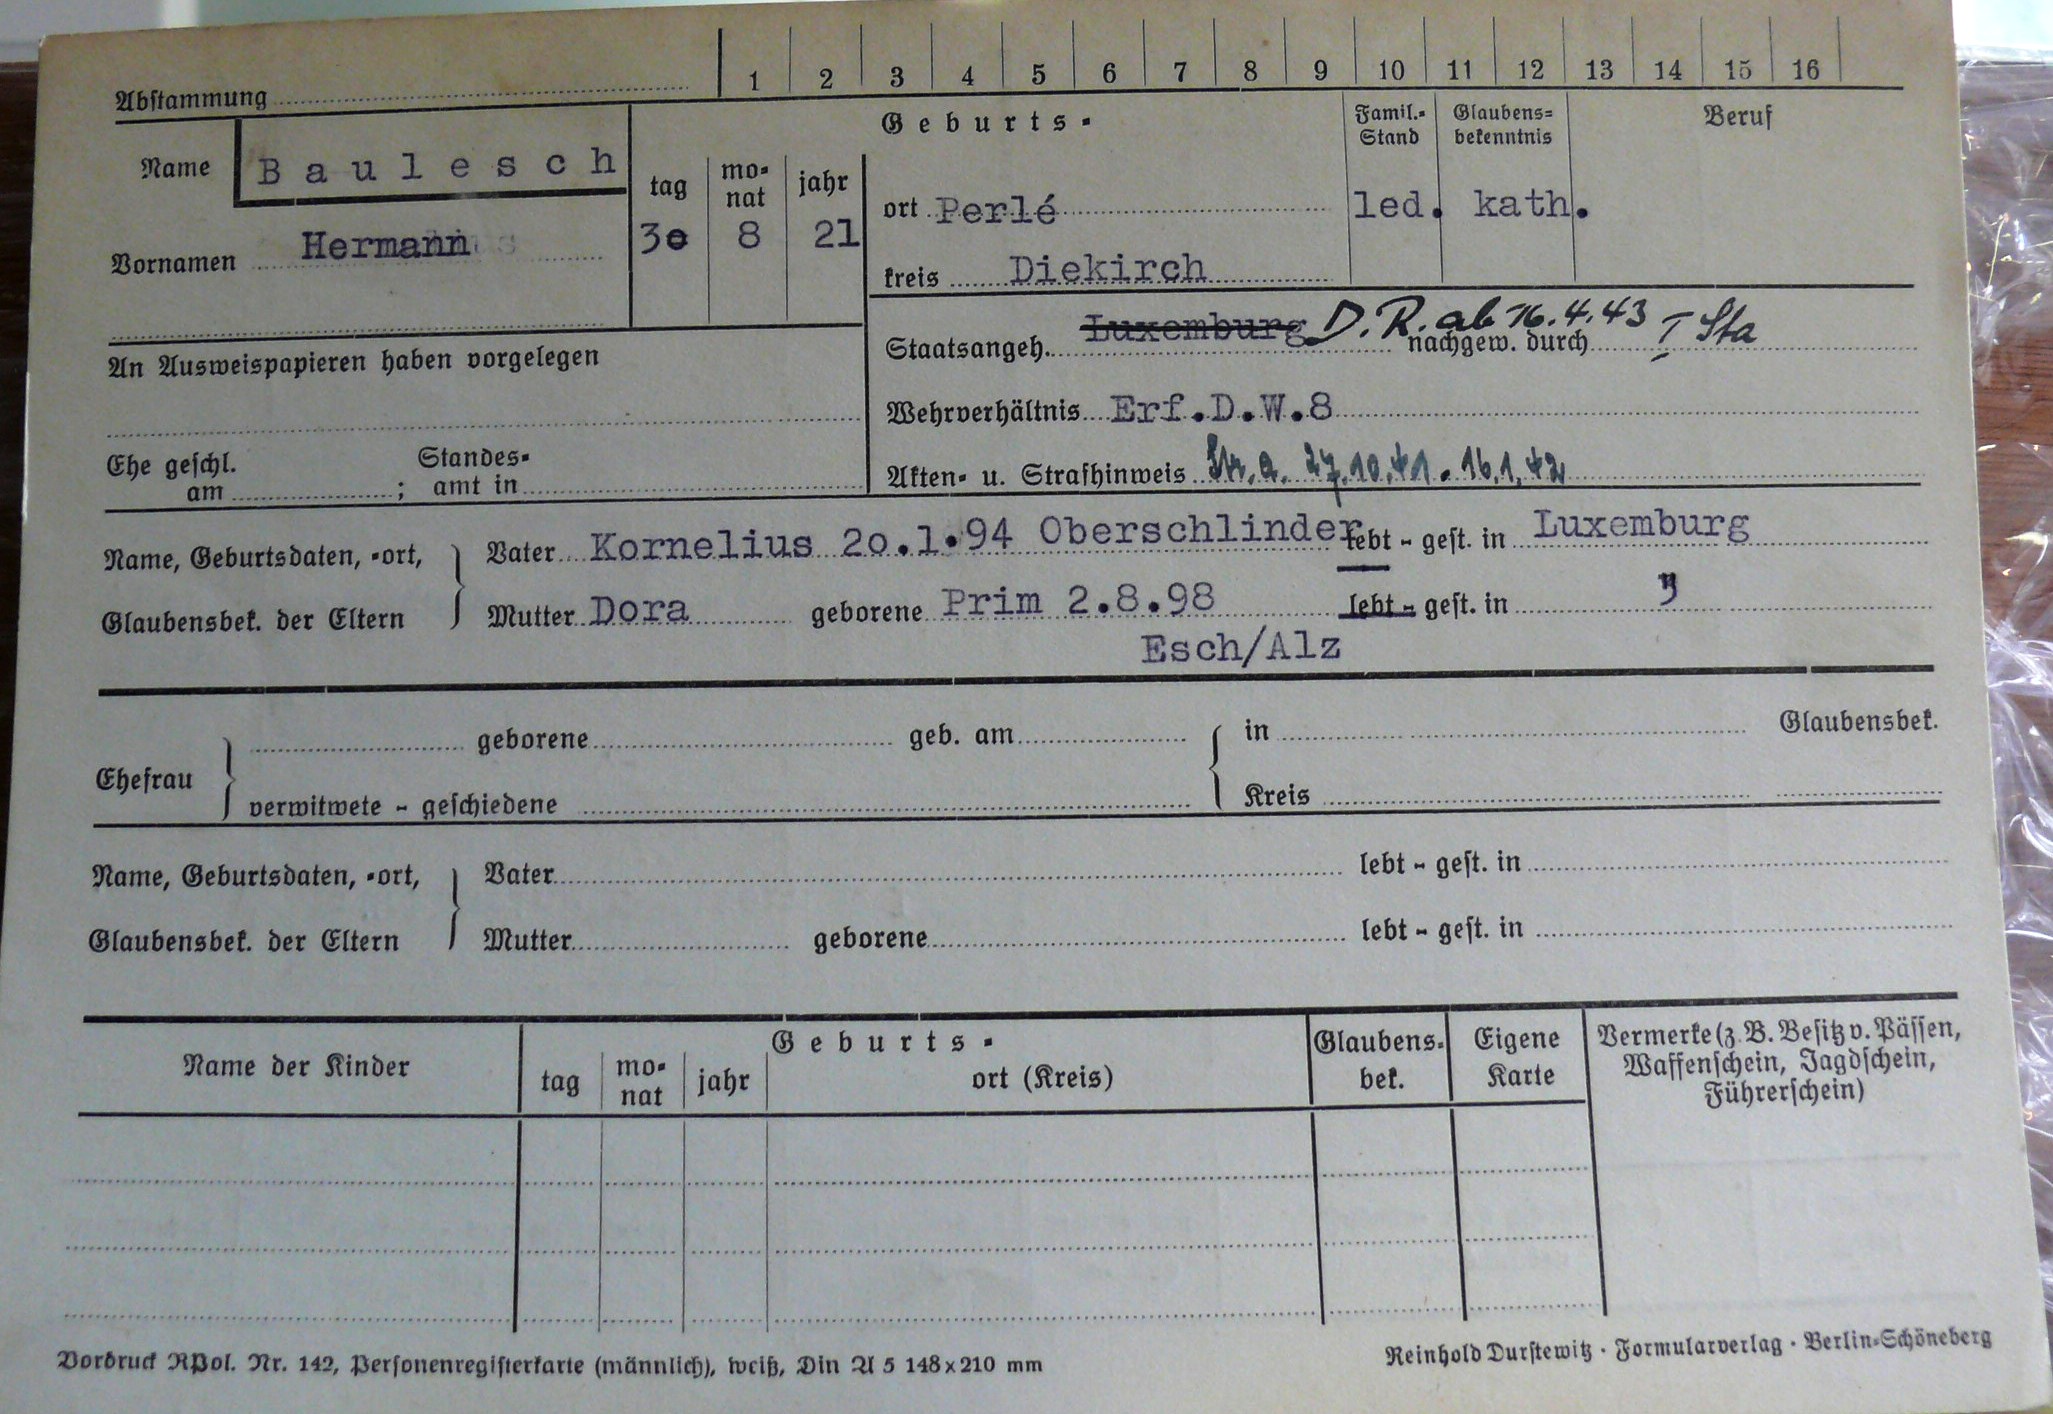 Abstammung 1 2 3 4 5 6 7 8 9 10 11 12 13 14 15 16
Name Baulesch
Vornamen Hermann
Geburts-
tag monat jahr
3o 8 21
ort Perlé
kreis Diekirch
Famil.-Stand led.
Glaubens-bekenntnis kath.
Beruf
An Ausweispapieren haben vorgelegen
Staatsangeh. Luxemburg D.R. ab 16.4.43 nachgew. durch I Sta
Wehrverhältnis Erf.D.W.8
Ehe geschl. am ; Standes-amt in
Akten- u. Strafhinweis Str.a. 27.10.41. 16.1.42
Name, Geburtsdaten, -ort,
Glaubensbek. der Eltern
Vater Kornelius 2o.1.94 Oberschlinder lebt - gest. in Luxemburg
Mutter Dora geborene Prim 2.8.98 lebt - gest. in
Esch/Alz
Ehefrau
geborene geb. am in Glaubensbek.
verwitwete - geschiedene Kreis
Name, Geburtsdaten, -ort,
Glaubensbek. der Eltern
Vater lebt - gest. in
Mutter geborene lebt - gest. in
Name der Kinder
Geburts-
tag monat jahr ort (Kreis)
Glaubens-bek.
Eigene Karte
Vermerke (z. B. Besitz v. Pässen,
Waffenschein, Jagdschein,
Führerschein)
Vordruck RPol. Nr. 142, Personenregisterkarte (männlich), weiß, Din A 5 148x210 mm
Reinhold Durstewitz · Formularverlag · Berlin-Schöneberg